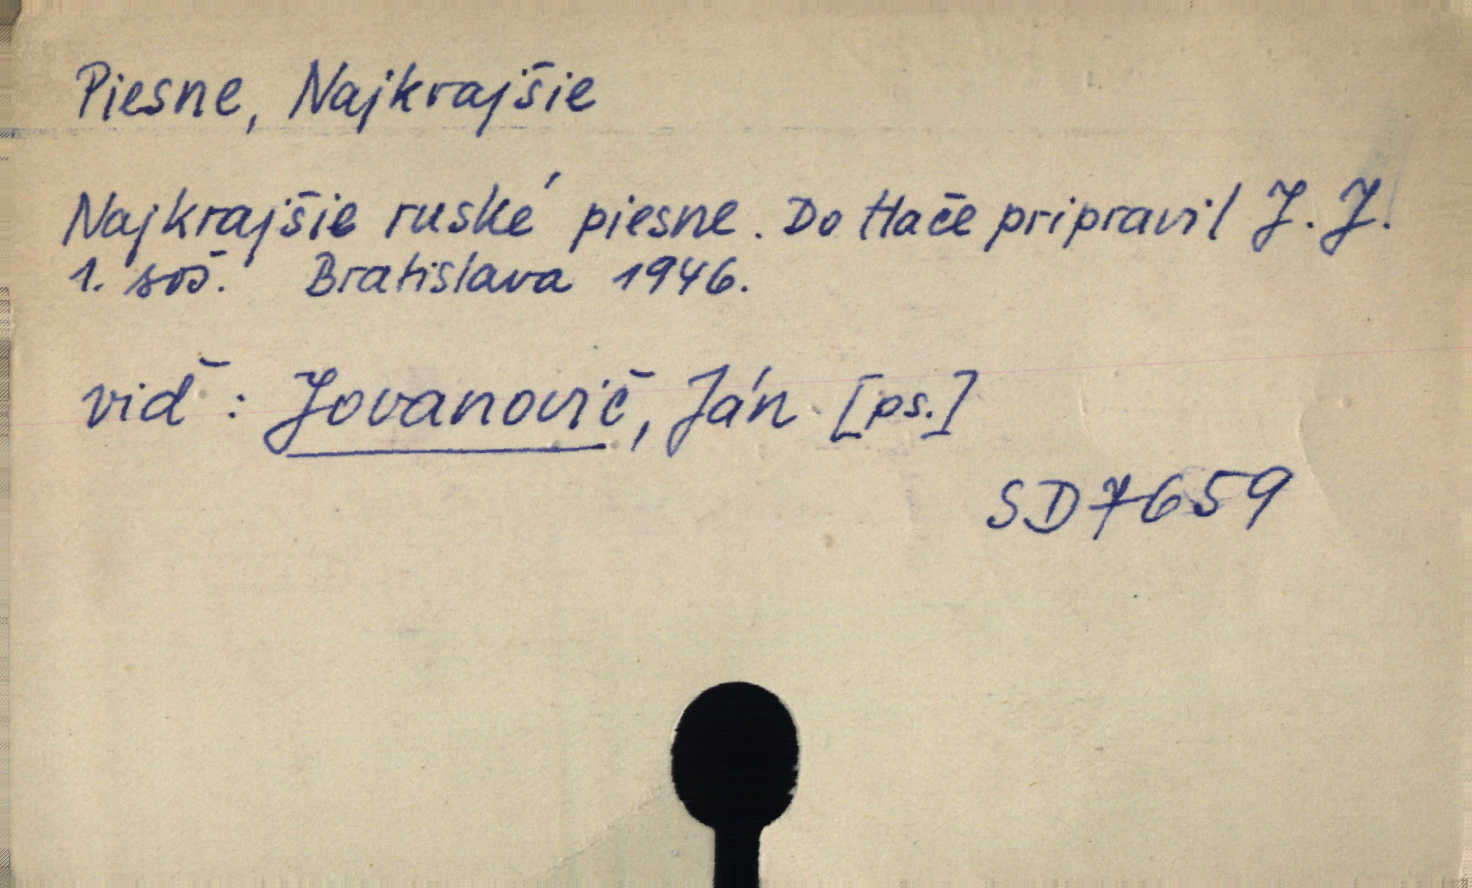 Piesne, Najkrajšie
Najkrajšie ruské piesne. Do tlače pripravil J. J.
1. soš. Bratislava 1946.
viď: Jovanovič, Ján [ps.]
SD7659